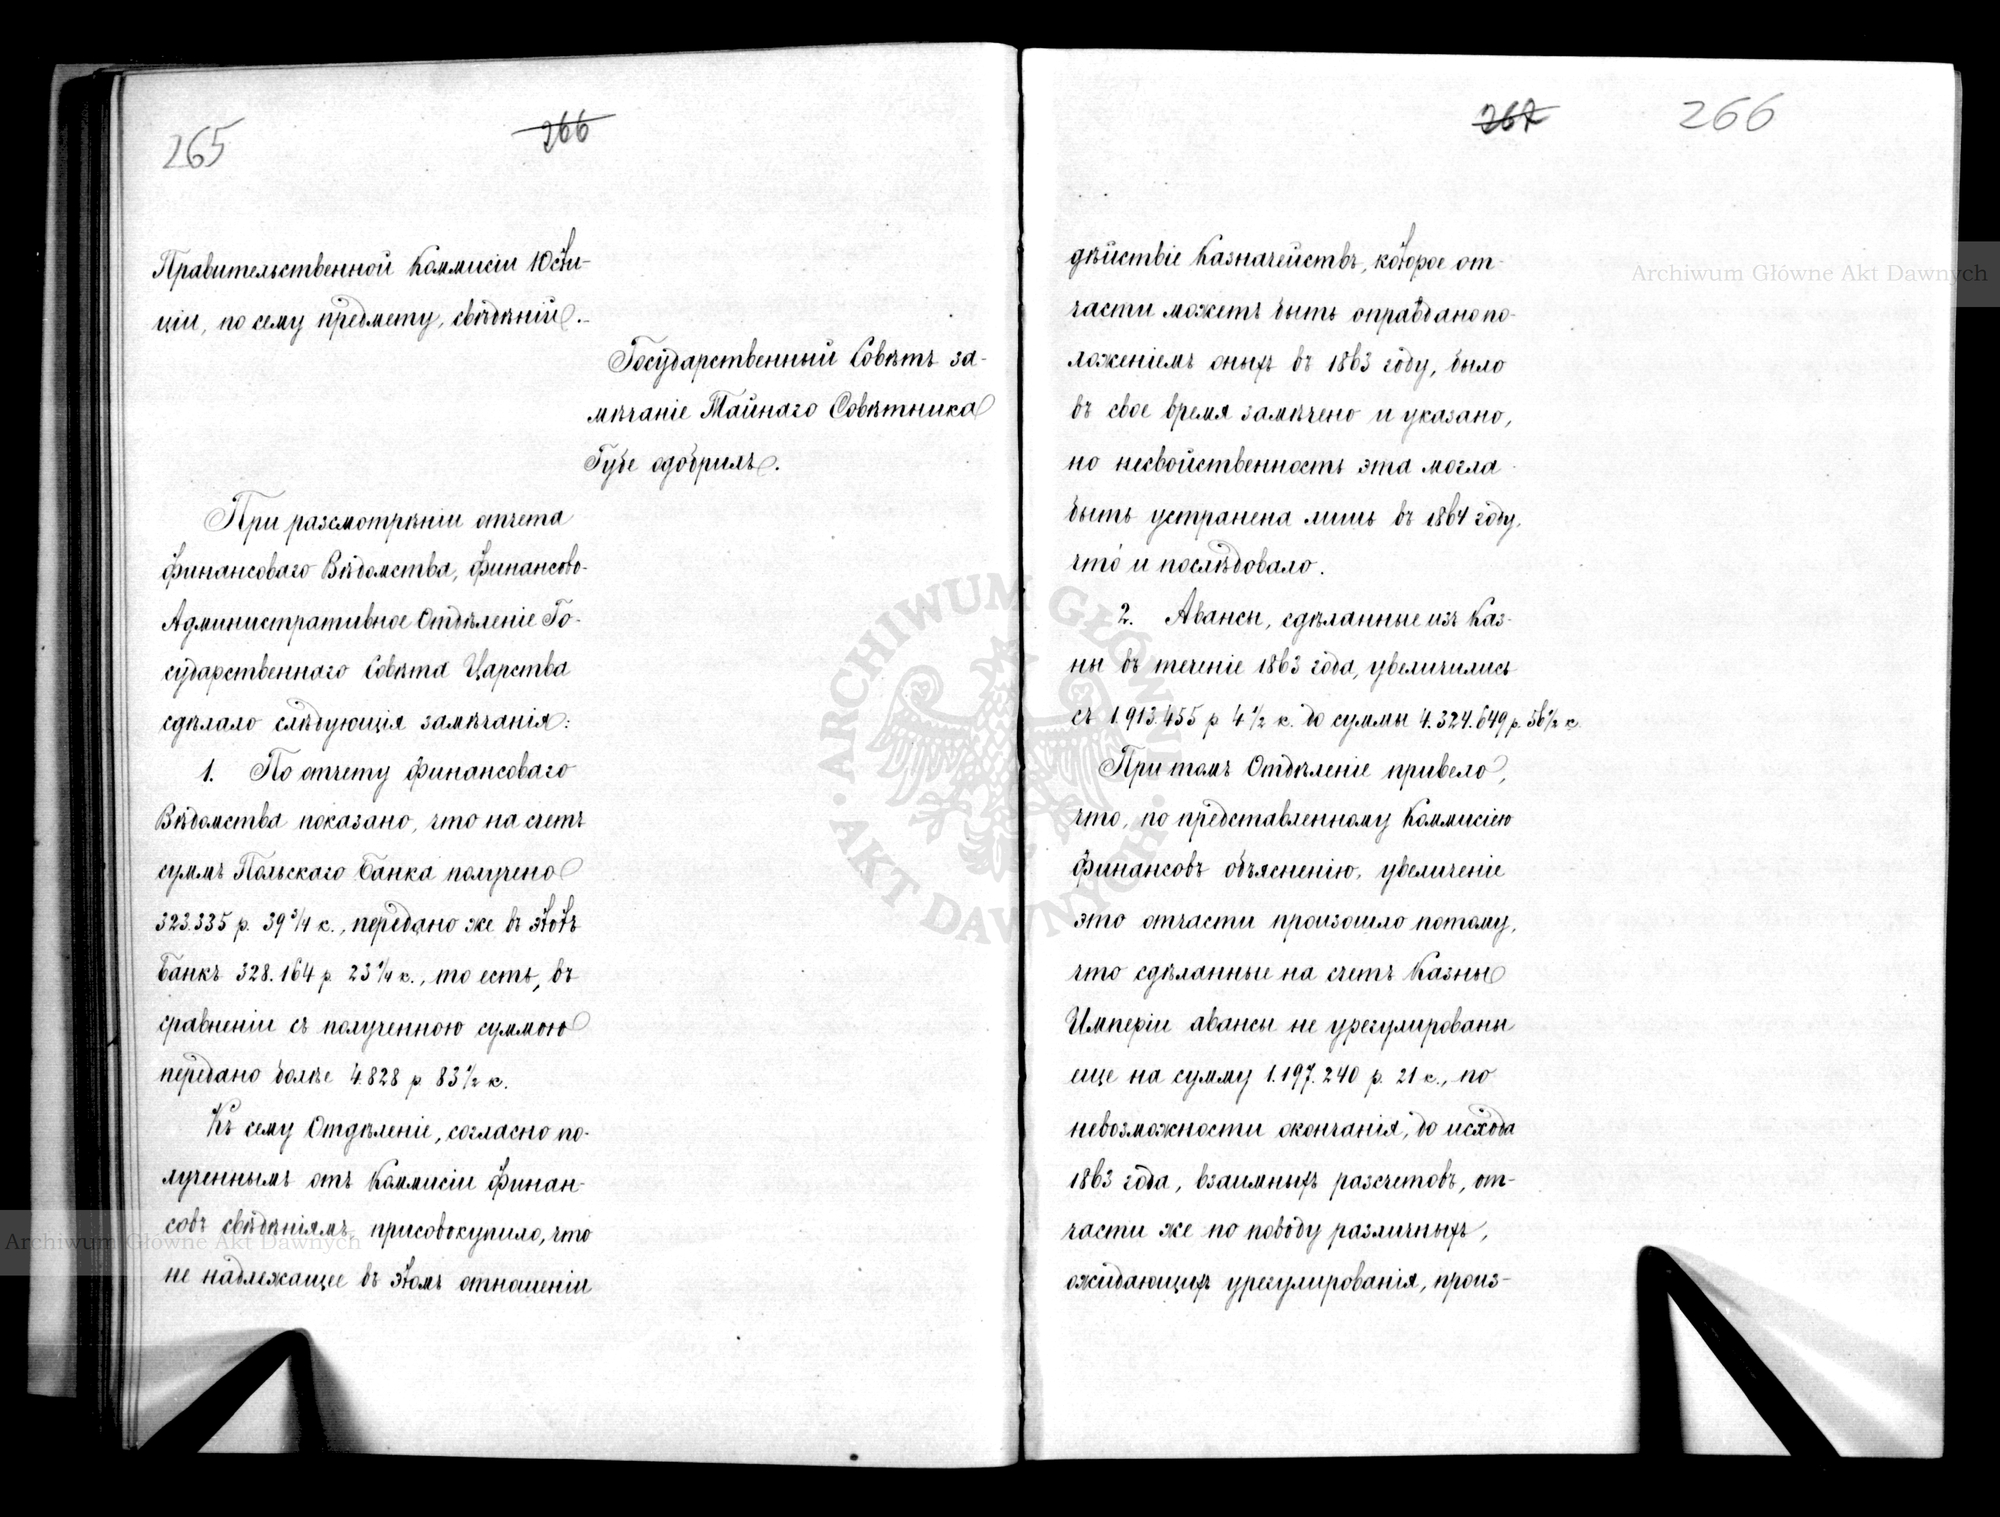 265
266
Правительственной Коммисіи Юсти-
ціи, по сему предмету, свѣдѣній.
Государственный Совѣтъ за-
мѣчаніе Тайнаго Совѣтника
Губе одобрилъ.
При разсмотрѣніи отчета
Финансоваго Вѣдомства, Финансово-
Административное Отдѣленіе Го-
сударственнаго Совѣта Царства
сдѣлало слѣдующія замѣчанія:
1. По отчету Финансоваго
Вѣдомства показано, что на счетъ
суммъ Польскаго Банка получено
323.335 р. 39 3/4 к., передано же въ этотъ
Банкъ 328.164 р. 23 1/4 к., то есть, въ
сравненіи съ полученною суммою
передано болѣе 4.828 р 83 1/2 к.
Къ сему Отдѣленіе, согласно по-
лученнымъ отъ Коммисіи Финан-
совъ свѣдѣніямъ, присовокупило, что
не надлежащее въ этомъ отношеніи
267
266
дѣйствіе Казначействъ, которое от-
части можетъ быть оправдано по-
ложеніемъ оныхъ въ 1863 году, было
въ свое время замѣчено и указано,
но несвойственность эта могла
быть устранена лишь въ 1864 году,
что́ и послѣдовало.
2. Авансы, сдѣланные изъ Каз-
ны въ теченіе 1863 года, увеличились
съ 1.913.455 р 4 1/2 к. до суммы 4.324.649 р. 56 1/2 к.
При томъ Отдѣленіе привело,
что, по представленному Коммисіею
Финансовъ объясненію, увеличеніе
это отчасти произошло потому,
что сдѣланные на счетъ Казны
Имперіи авансы не урегулированы
еще на сумму 1.197.240 р. 21 к., по
невозможности окончанія, до исхода
1863 года, взаимныхъ разсчетовъ, от-
части же по поводу различныхъ,
ожидающихъ урегулированія, произ-
Archiwum Główne Akt Dawnych
Archiwum Główne Akt Dawnych
ARCHIWUM GŁÓWNE
AKT DAWNYCH